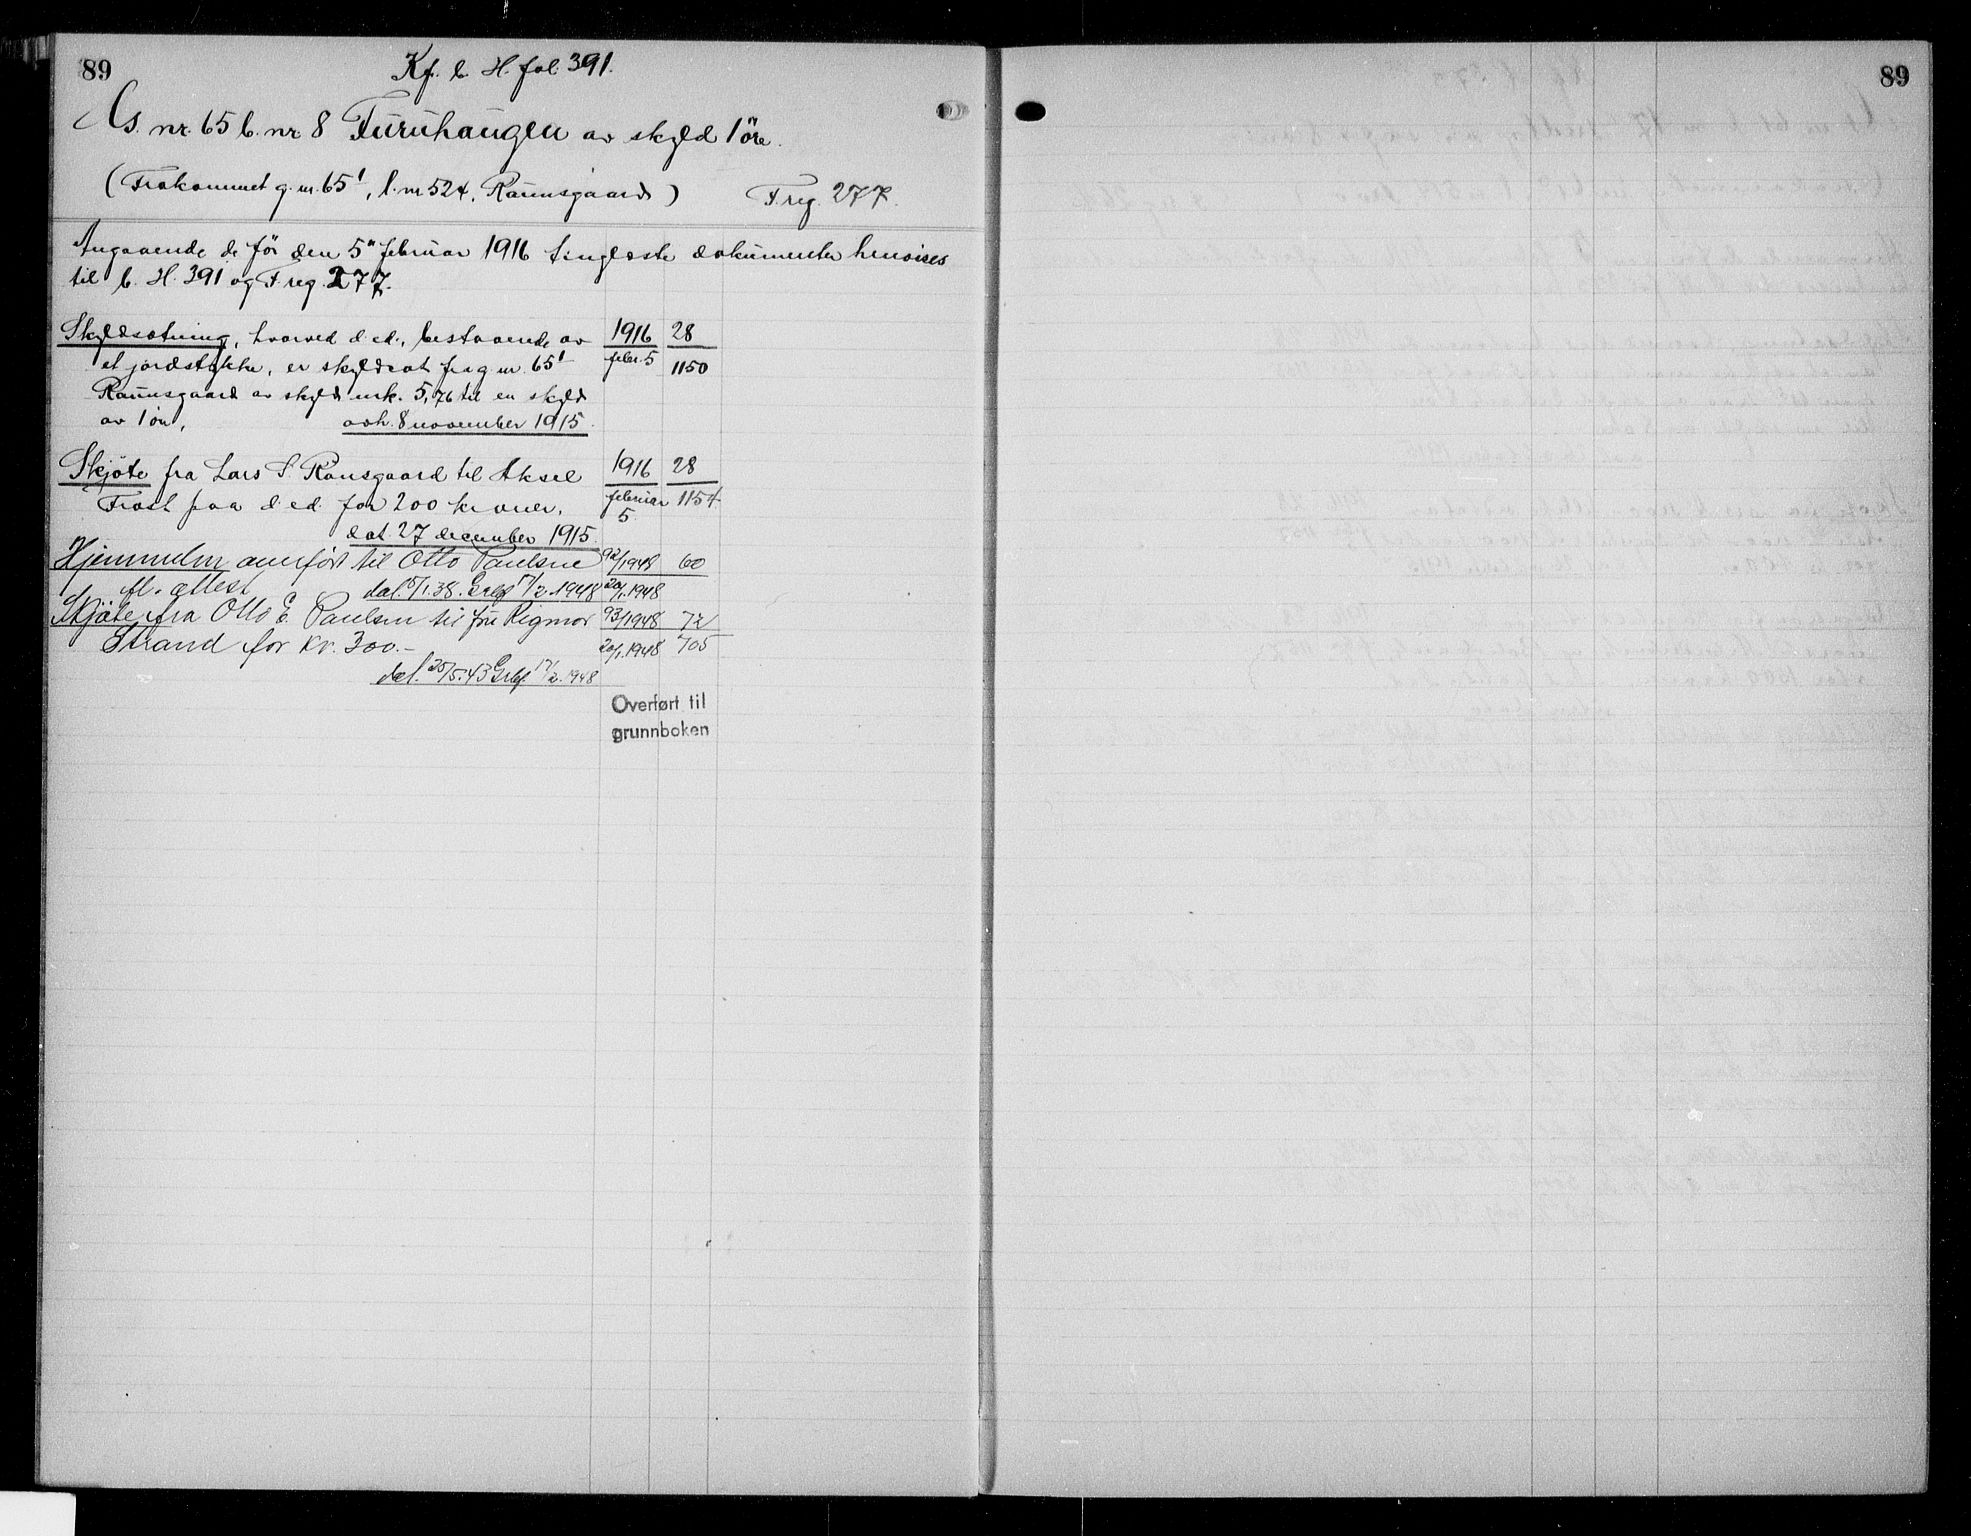 89
Kf. b. H. fol. 391.
G. nr. 65 b. nr 8 Furuhaugen av skyld 1 öre.
(Frakommet g. nr. 65¹, l. nr 524, Raunsgaard)
T. reg. 277.
Angaaende de för den 5" februar 1916 tinglæste dokumenter henvises
til b. H. 391 og T reg. 277.
Skyldsætning, hvorved d. ed., bestaaende av 1916 28
et jordstykke, er skyldsat fra g nr. 65¹ febr. 5 1150
Raunsgaard av skyld mrk. 5,76 til en skyld
av 1 öre, avh. 8 november 1915.
Skjöte fra Lars S. Raunsgaard til Aksel 1916 28
Frost paa d. ed. for 200 kroner, februar 1154
5
dat. 27 december 1915.
Hjemmelen anmført til Otto Paulsen 92/1948 60
fl. attest dat. 15/1.38. Grbf 17/2.1948 20/1.1948
Skjøte fra Otto E. Paulsen til fru Rigmor 93/1948 72
Strand for kr. 300.- 20/1.1948 705
dat. 25/5.43 Grbf. 17/2.1948
Overført til
grunnboken
89